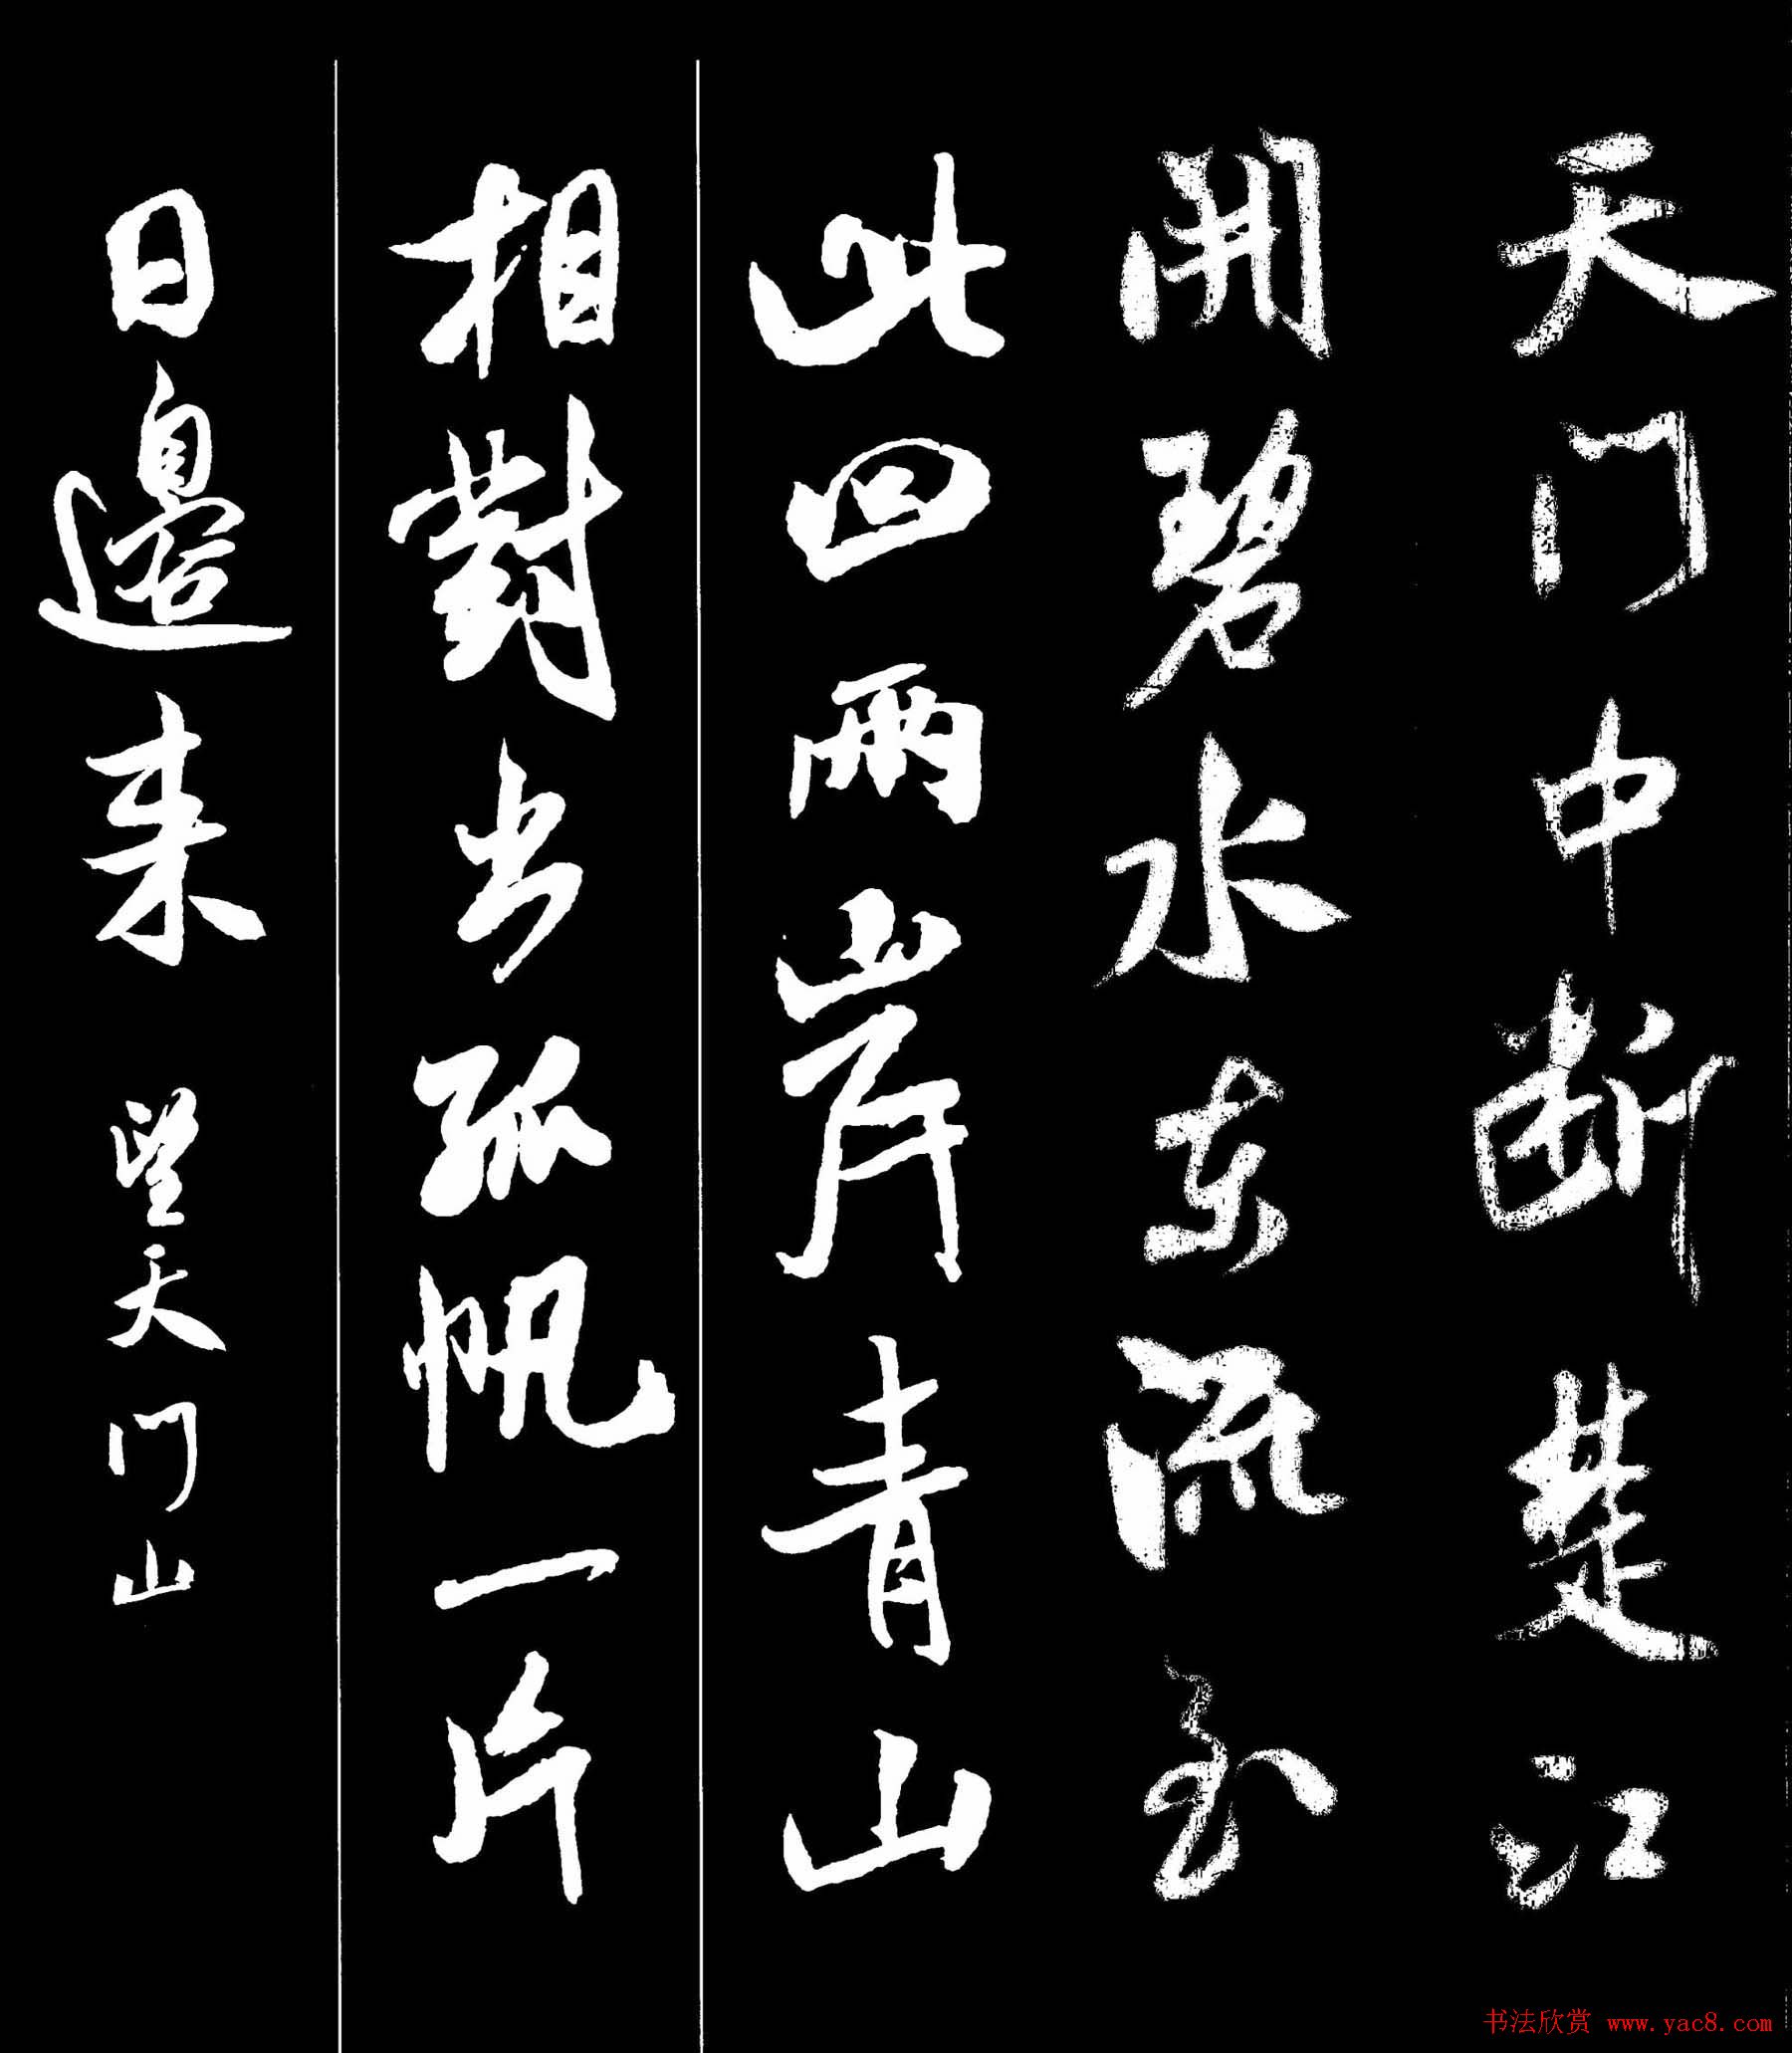 天门中断楚江
開碧水東流至
此回兩岸青山
相對出孤帆一片
日邊来 望天门山
书法欣赏 www.yac8.com